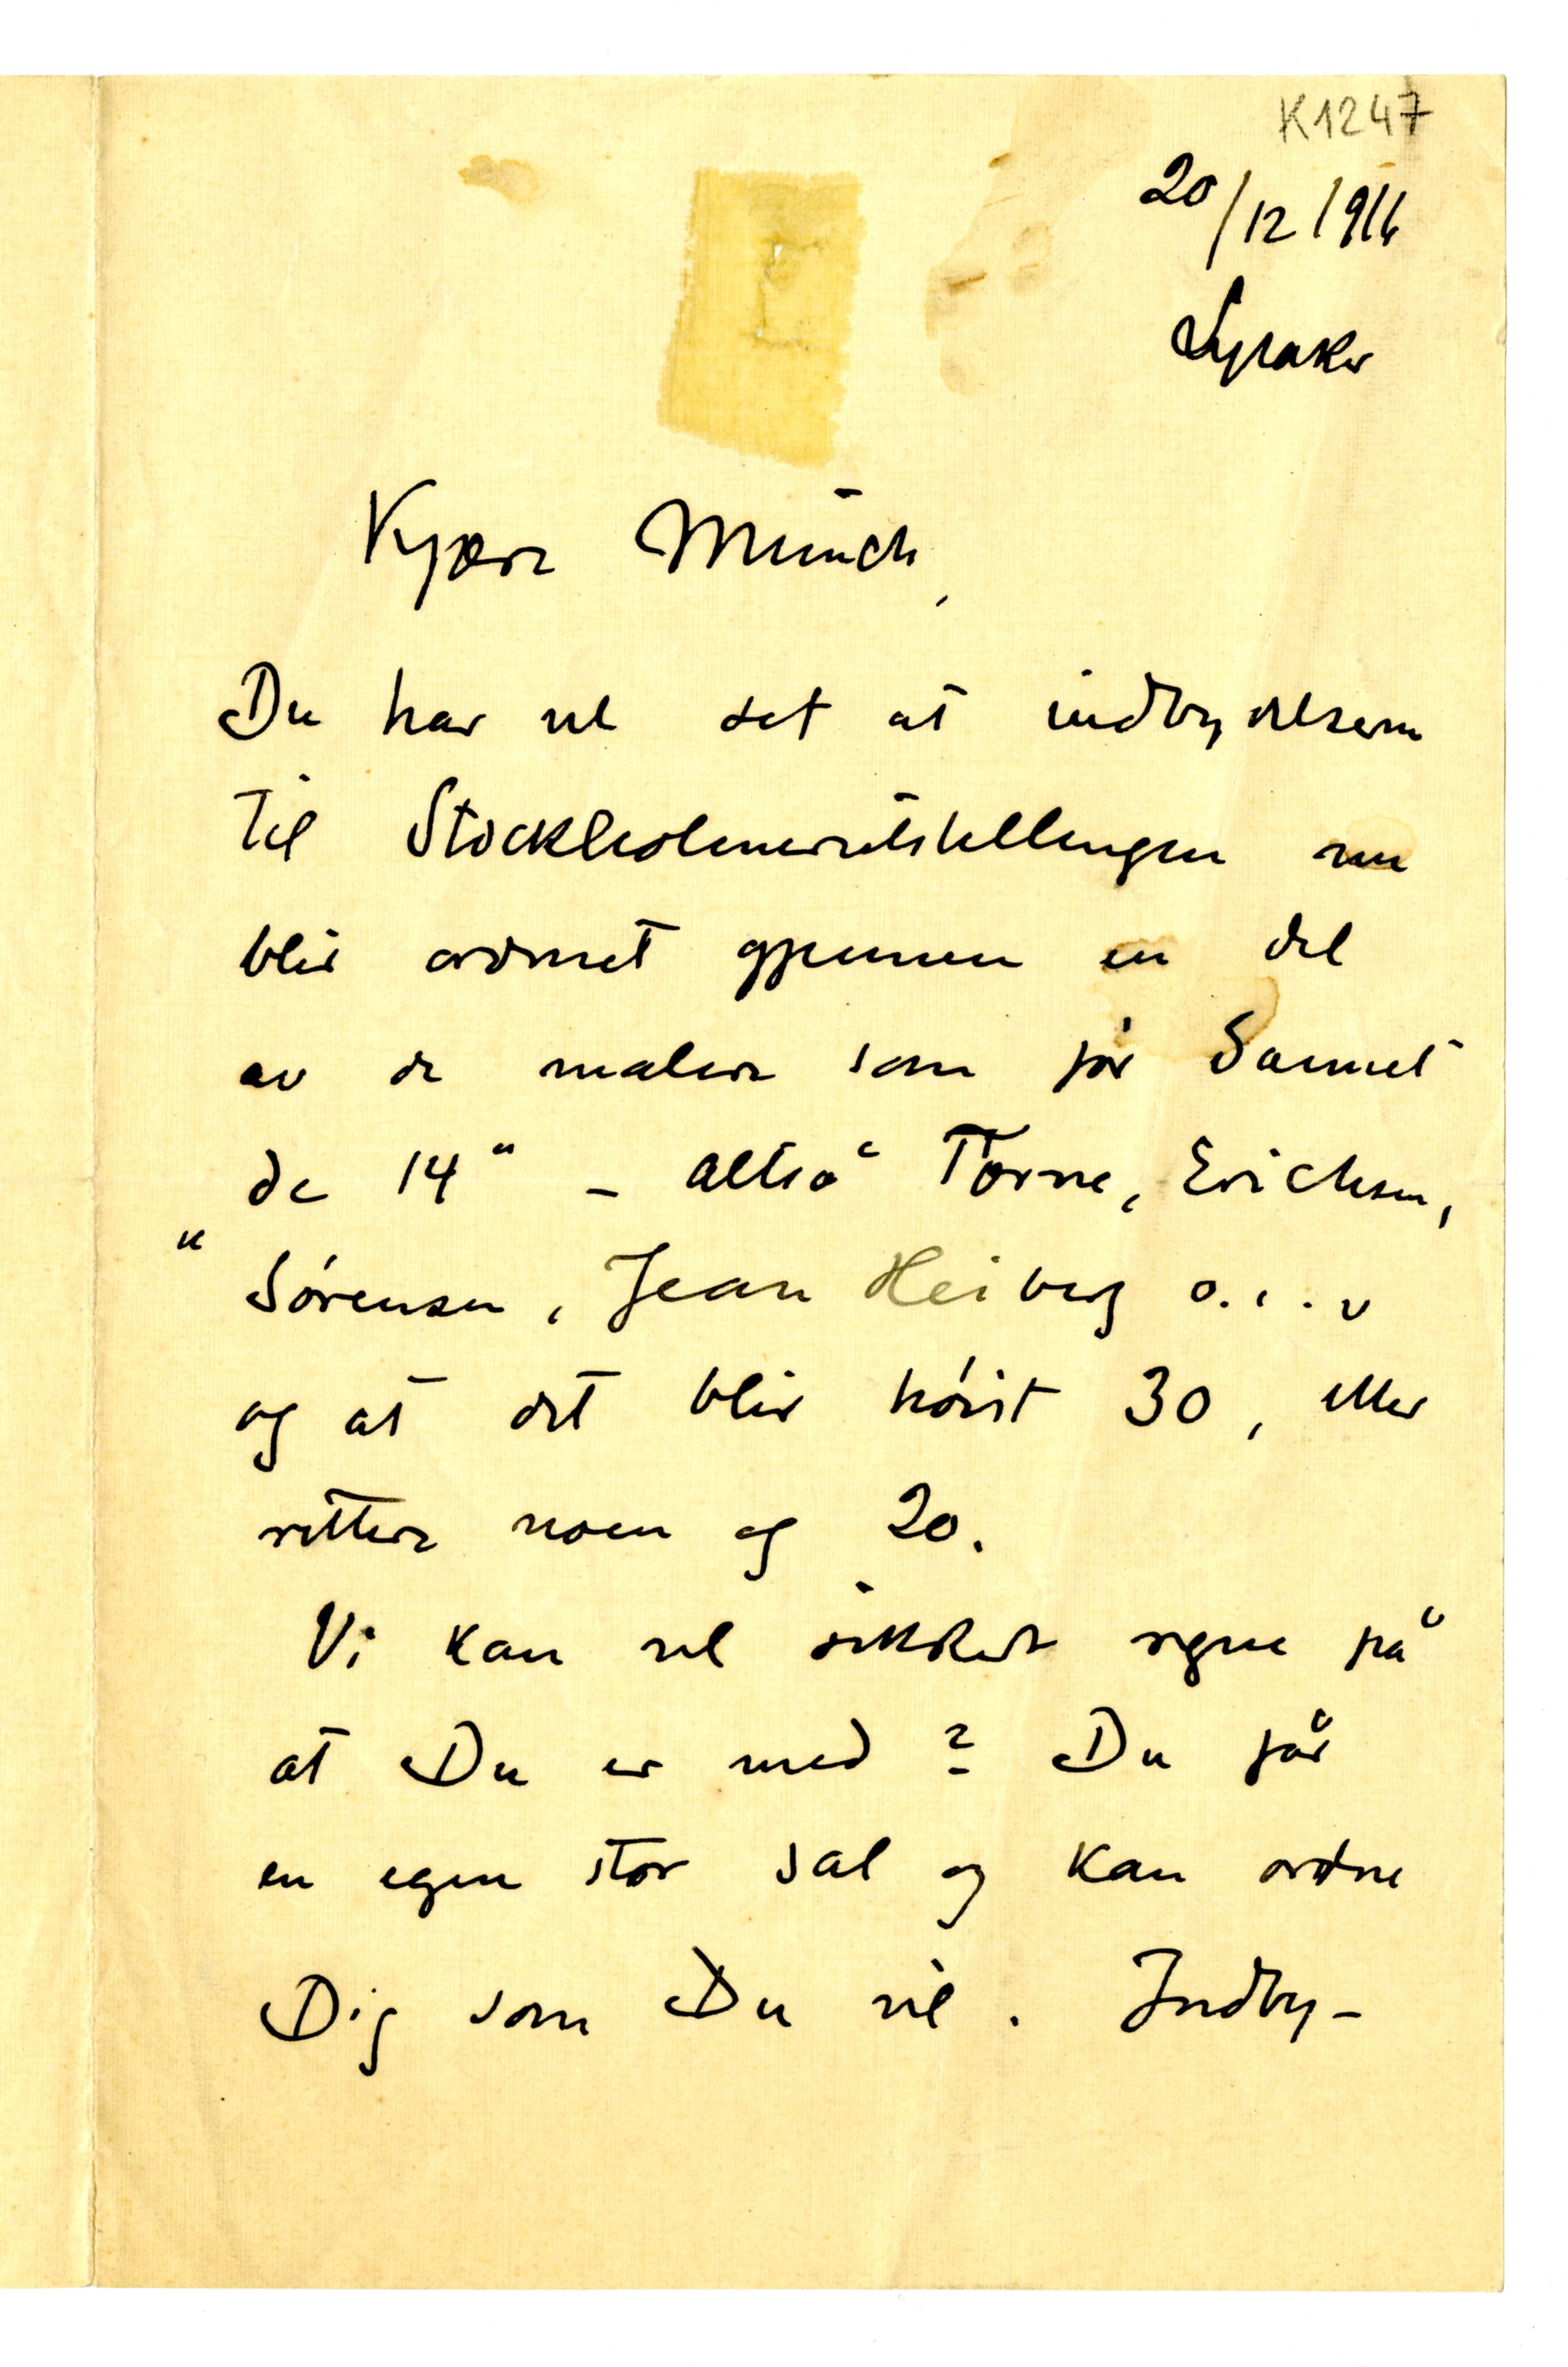 K1247
20/12 1916
Lysaker
Kjære Munch,
Du har vel set at indbydelserne
til Stockholmerutstillingen nu
blir ordnet gjennem en del
av de malere som før dannet
de 14" – altså Torne, Erichsen,
"
Sørensen, Jean Heiberg o.s.v
og at det blir höist 30, eller
rettere noen og 20.
Vi kan vel sikkert regne på
at Du er med? Du får
en egen stor sal og kan ordne
Dig som Du vil. Indby-